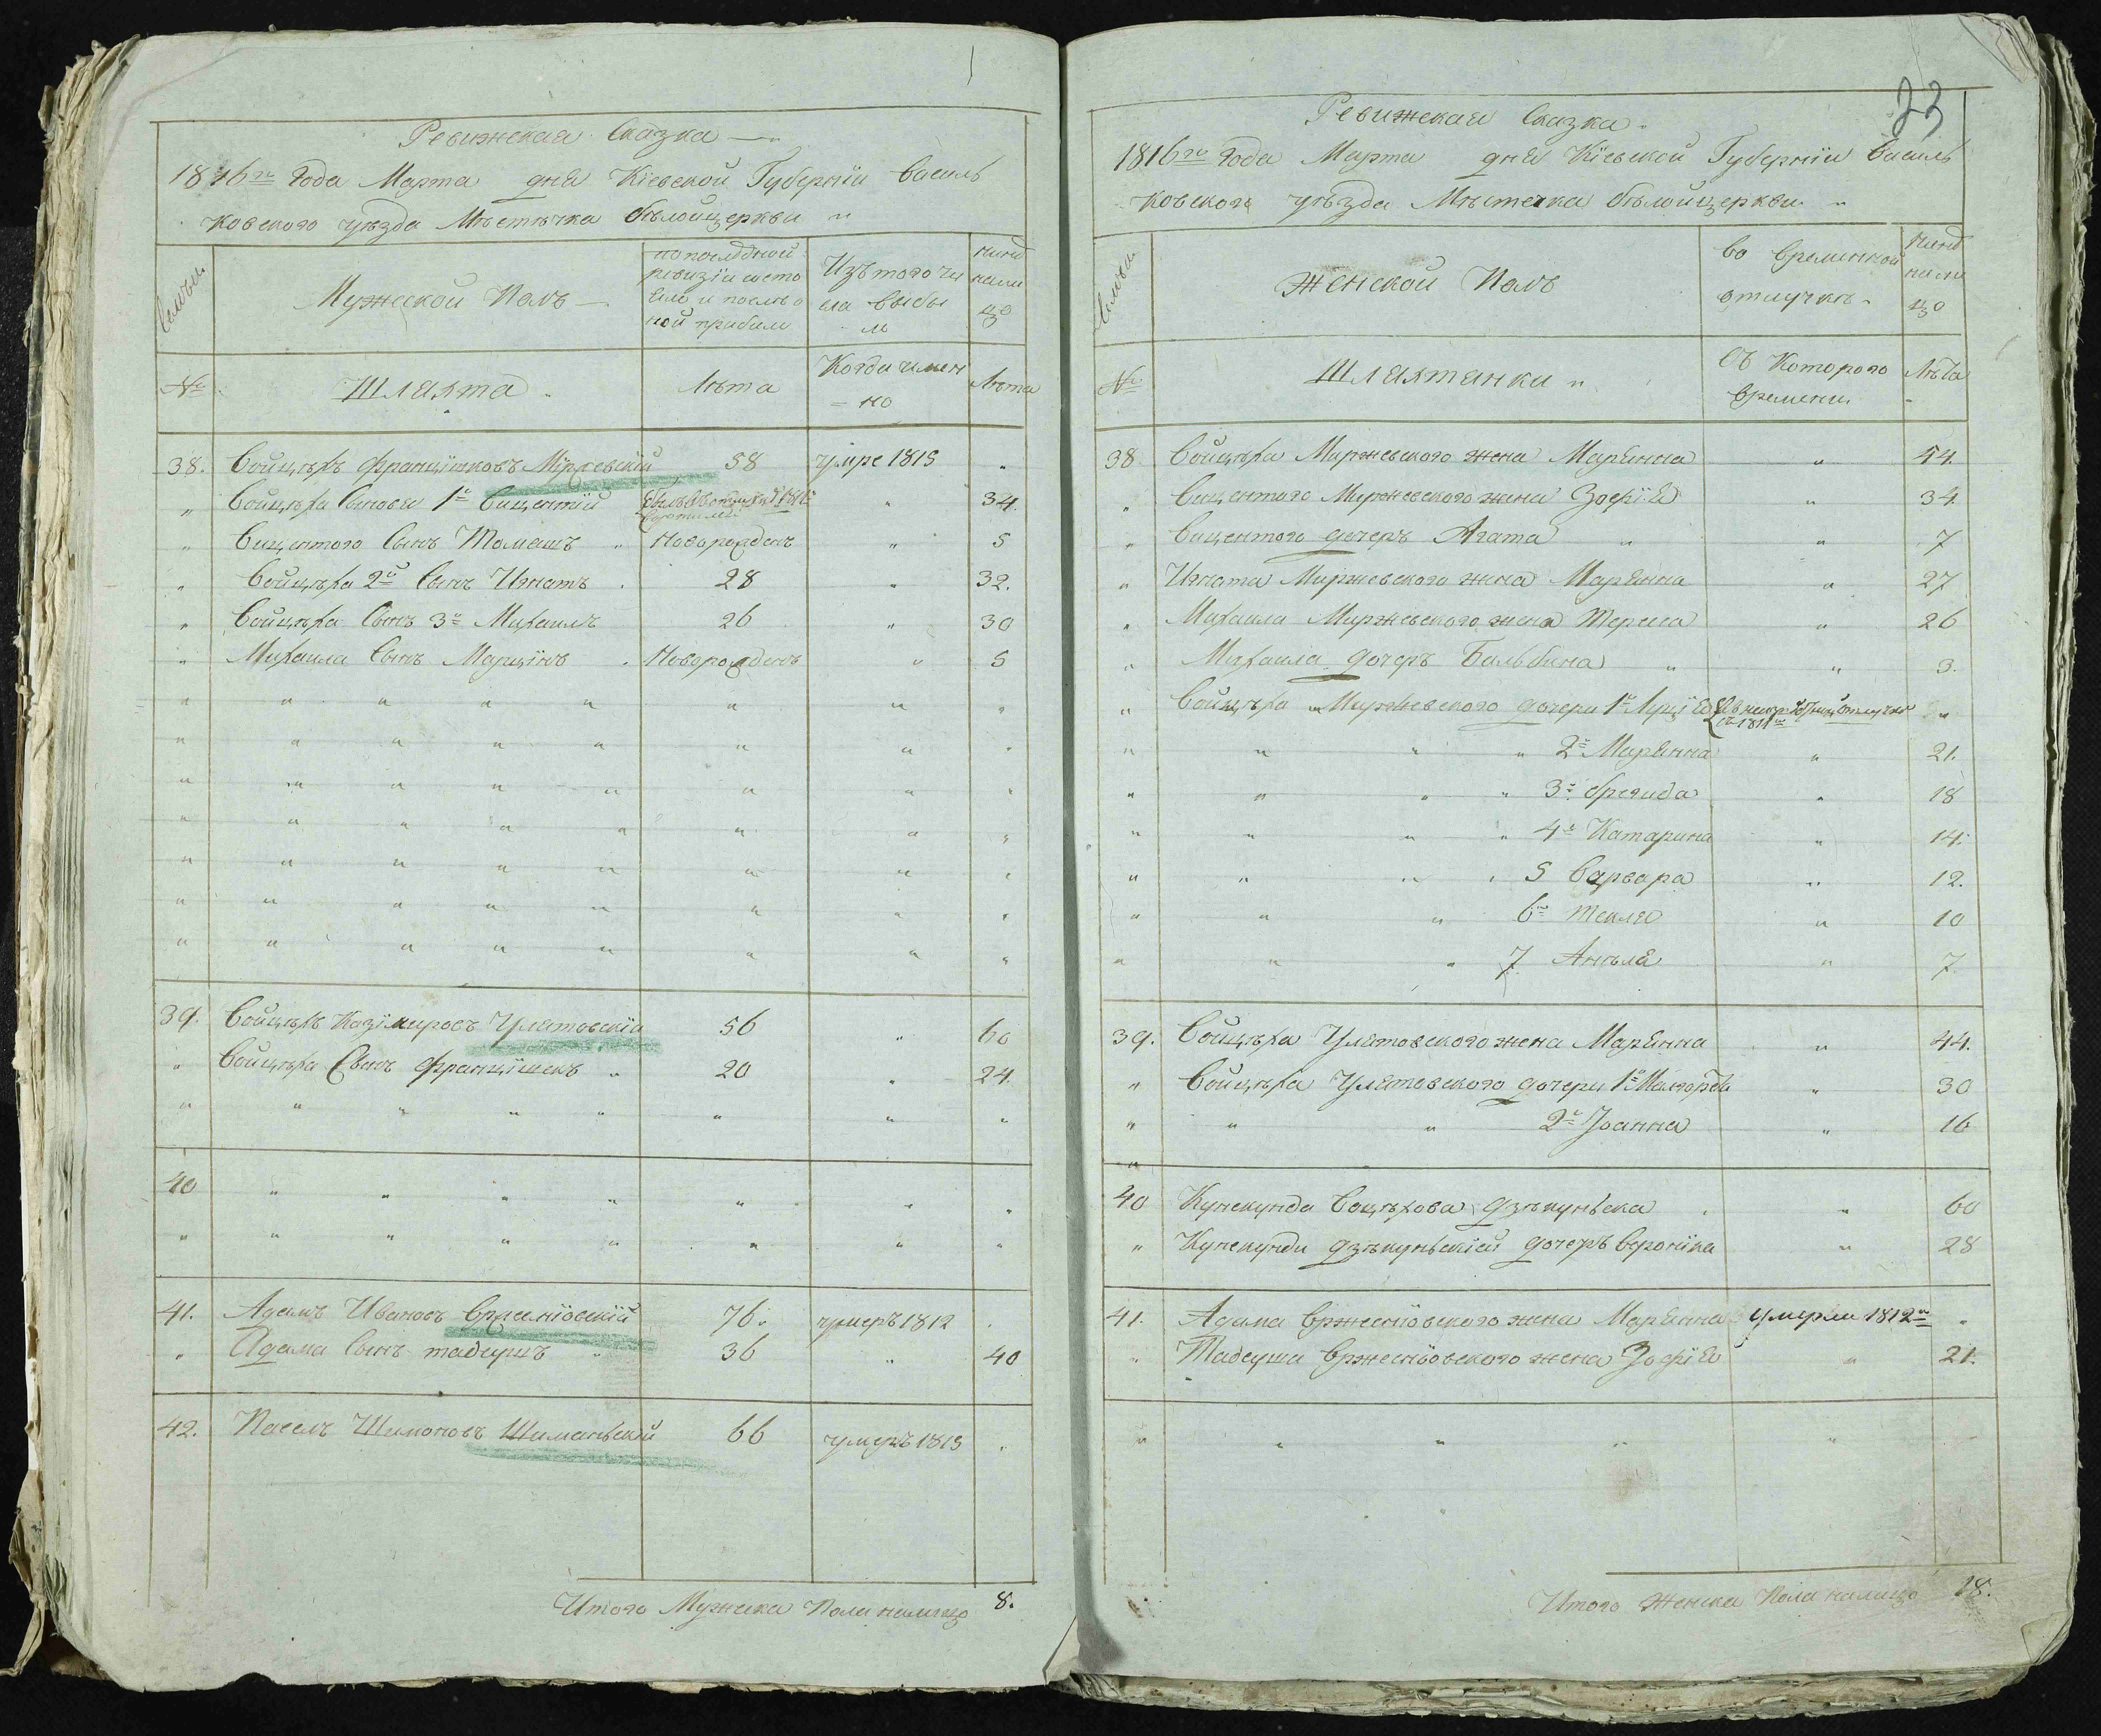 Ревижская Сказка
1816го Года Марта дня Кіевской Губерніи Василь
ковского уѣзда Мѣстѣчка бѣлойцеркви
Семьи
Мужеской Полъ
по последной
ревизіи состо
яло и послѣ о
ной прибыли
Изъ того чи
сла выбы
ли
нынѣ
нали
цо
№
Шляхта
Лѣта
Когда имен
но
Лѣта
38. Войцѣхъ Францишковъ Миржевскій 58 умре 1815 "
" Войцѣха Сыновья 1й Вицентій 34.
" Вицентого Сынъ Томашъ Новорожденъ " 5
" Войцѣха 2й Сынъ Игнатъ 28 " 32.
" Войцѣха Сынъ 3й Михаилъ 26 " 30
" Михаила Сынъ Марцінъ Новорожденъ " 5
39. Войцѣхъ Казімировъ Улятовскій 56 " 60
" Войцѣха Сынъ Францішекъ " 20 " 24.
40
41. Адамъ Ивановъ Вржеснiовскій 76. умеръ 1812
" Адама Сынъ тадеушъ " 36 " 40
42. Павелъ Шимоновъ Шиманьскій 66 умеръ 1813
Итого Мужска Пола налицо 8.
23
Ревижская Сказка
1816го Года Марта дня Кіевской Губерніи Василь
ковского уѣзда Мѣстечка бѣлойцеркви
Семьи
Женской Полъ
во временной
отлучкѣ
нынѣ
нали
цо
№
Шляхтянки
Съ Которого
времени
Лѣта
38 Войцѣха Миржевского жена Марянна " 54.
" Вицентого Миржевского жена Зофія " 34.
" Вицентого дочеръ Агата " 7
" Игната Миржевского жена Марянна " 27
" Михаила Миржевского жена Тереса " 26
" Михаила дочеръ Бальбина " 3.
" Войцѣха Миржевского дочери 1я Луція отлучкѣ 1811го "
" " " 2я Марянна " 21.
" " " 3я бригида " 18
" " " 4я Катарина " 14.
" " " 5 Варвара " 12.
" " " 6я Текля " 10
" " " 7 Анѣля " 7
39. Войцѣха Улятовского жена Марянна " 44.
" Войцѣха Улятовского дочери 1я " 30
" " " 2я Іоанна " 16
40 Кунекунда Воцѣхова дзѣкуньска " 60
" Кунекунди дзѣкуньскіей дочеръ Вероніка " 28
41. Адама Вржеснiовского жена Марянна умерла 1812го "
" Тадеуша Вржеснiовского жена Зофія " 21.
Итого Женска Пола налицо 18.